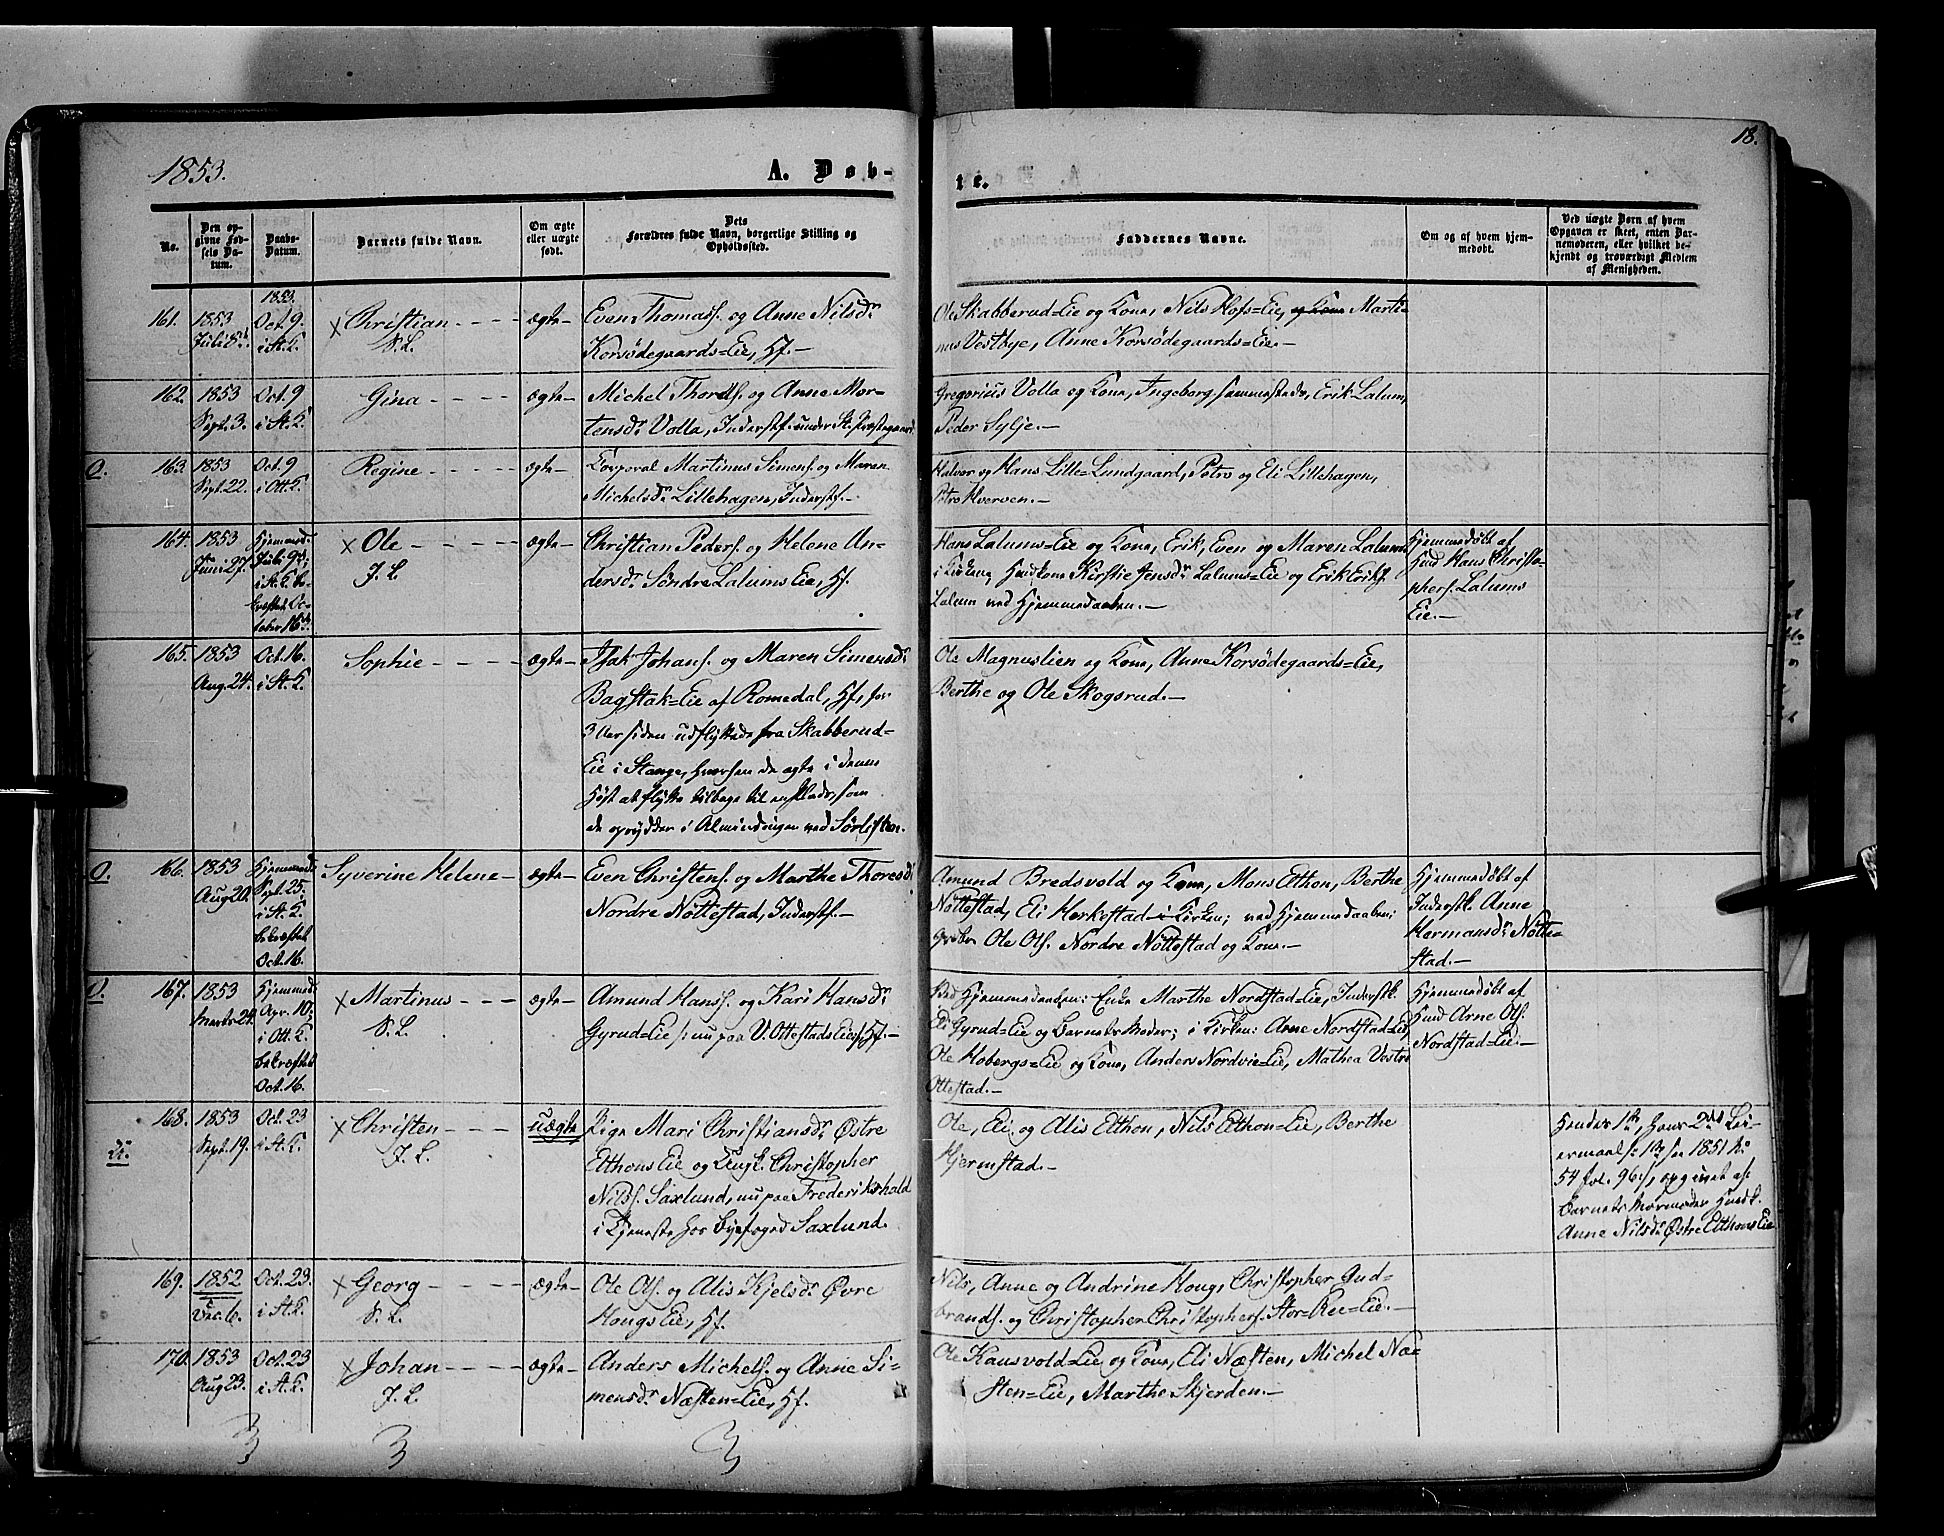 18.
1853.
A. Døb-
te.
No.
Den op-
givne Fød-
sels Da-
tum.
Daabs-
Datum.
Barnets fulde Navn.
Om ægte
eller uægte
født.
Dets
Forældres fulde Navn, borgerlige Stilling og
Opholdssted.
Faddernes Navne.
Om og af hvem hjem-
medøbt.
Ved uægte Børn af hvem
Opgaven er skeet, enten Bar-
nemoderen, eller hvilket be-
kjendt og troværdigt Medlem
af Menigheden.
161. 1853 Juli 8d.
1853. Oct. 9. i St. K.
x Christian
S. L.
ægte
Even Thomass. og Anne Nilsdr.
Korsødegaards=Eie, Hf.
Ole Skabberud=Eie og Kone, Nils Hofs=Eie, og Kone Marti-
nus Vestbye, Anne Korsødegaards=Eie.
162. 1853 Sept. 3.
Oct. 9 i St. K.
Gina
ægte
Michel Thords. og Anne Mor-
tensdr. Volla, Inderstf. under St. Præstegaard
Gregorius Volla og Kone, Ingeborg sammesteds, Erik Lalum,
Peder Sylje.
O. 163. 1853 Sept. 22.
Oct. 9 i Ott. K.
Regine
ægte
Corporal Martinus Simens. og Maren
Michelsdr. Lillehagen, Inderstf.
Halvor og Hans Lille=Lundgaard, Petro og Eli Lillehagen,
Petro Hverven.
164. 1853 Juni 27.
Hjemmed. Juli 9d; i St. K. be-
kræftet Oc-
tober 16d.
x Ole
J. L.
ægte
Christian Peders. og Helene An-
dersdr. Søndre Lalums Eie, Hf.
Hans Lalums=Eie og Kone, Erik, Even og Maren Lalum
i Kirken; Husmkone Kirstie Jensdr. Lalums=Eie og Erik Eriks.
Lalum ved Hjemmedaaben.
Hjemmedøbt af
Husmd Hans Christo-
phers. Lalums
Eie.
165. 1853 Aug. 24.
Oct. 16. i St. K.
Sophie
ægte
Isak Johans. og Maren Simensdr.
Bagstak=Eie af Romedal, Hf, for
3 Aar siden udflyttede fra Skabberud=
Eie i Stange, hvorhen de agte i denne
Høst at flytte tilbage til en Plads, som
de oprydder i Almindingen ved Sørlistøe.
Ole Magnuslien og Kone, Anne Korsødegaards=Eie,
Berthe og Ole Skogsrud.
O. 166. 1853 Aug 20.
Hjemmed. Sept. 25. i St. K.
bekræftet
Oct. 16.
Syverine Helene
ægte
Even Christens. og Marthe Thoresdr.
Nordre Nøttestad, Inderstf.
Amund Bredsvold og Kone, Mons Etthon, Berthe
Nøttestad, Eli Horkestad i Kirken; ved Hjemmedaaben:
Gdbr. Ole Ols. Nordre Nøttestad og Kone.
Hjemmedøbt af
Inderstk. Anne
Hermansdr. Nøtte-
stad.
O. 167. 1853 Marts 24.
Hjemmed. Apr. 10; i Ott. K.
bekræftet
Oct. 16.
x Martinus
S. L.
ægte
Amund Hanss. og Kari Hansdr.
Gyrud=Eie /: nu paa V. Ottestads Eie :/ Hf.
Ved Hjemmedaaben: Enke Marthe Nordstad=Eie, Inderstk.
Eli Gyrud=Eie og Barnets Moder; i Kirken: Anne Nordstad=Eie,
Ole Hobergs=Eie og Kone, Anders Nordvie=Eie, Mathea Vestre
Ottestad.
Hjemmedøbt af
Husmd Arne Ols.
Nordstad=Eie.
168. 1853 Sept. 19.
Oct. 23 i St. K.
x Christen
J. L.
uægte
Pige Mari Christiansdr. Østre
Etthons Eie og Ungk. Christopher
Nilss. Saxlund, nu paa Frederikshald
i Tjeneste hos Byefoged Saxlund.
Ole, Eli og Alis Etthon, Nils Etthon=Eie, Berthe
Hjermstad.
Hendes 1ste, hans 2det Lei-
ermaal /: 1ste see 1851 No
54 fol. 96 :/, opgivet af
Barnets Mormoder Husmk.
Anne Nilsdr. Østre Etthons Eie
169. 1852 Dec. 6.
Oct. 23. i St. K.
x Georg
S. L.
ægte
Ole Ols. og Alis Kjelsdr. Øvre
Hougs Eie, Hf.
Nils, Anne og Andrine Houg, Christopher Gud-
brands. og Christopher Christophers. Stor=Ree=Eie.
170. 1853 Aug 23.
Oct. 23 i St. K.
x Johan
J. L.
ægte
Anders Michels. og Anne Si-
mensdr. Næsten=Eie, Hf.
Ole Kausvold=Eie og Kone, Eli Næsten, Michel Næ-
sten=Eie, Marthe Skjerden.
3 3 3